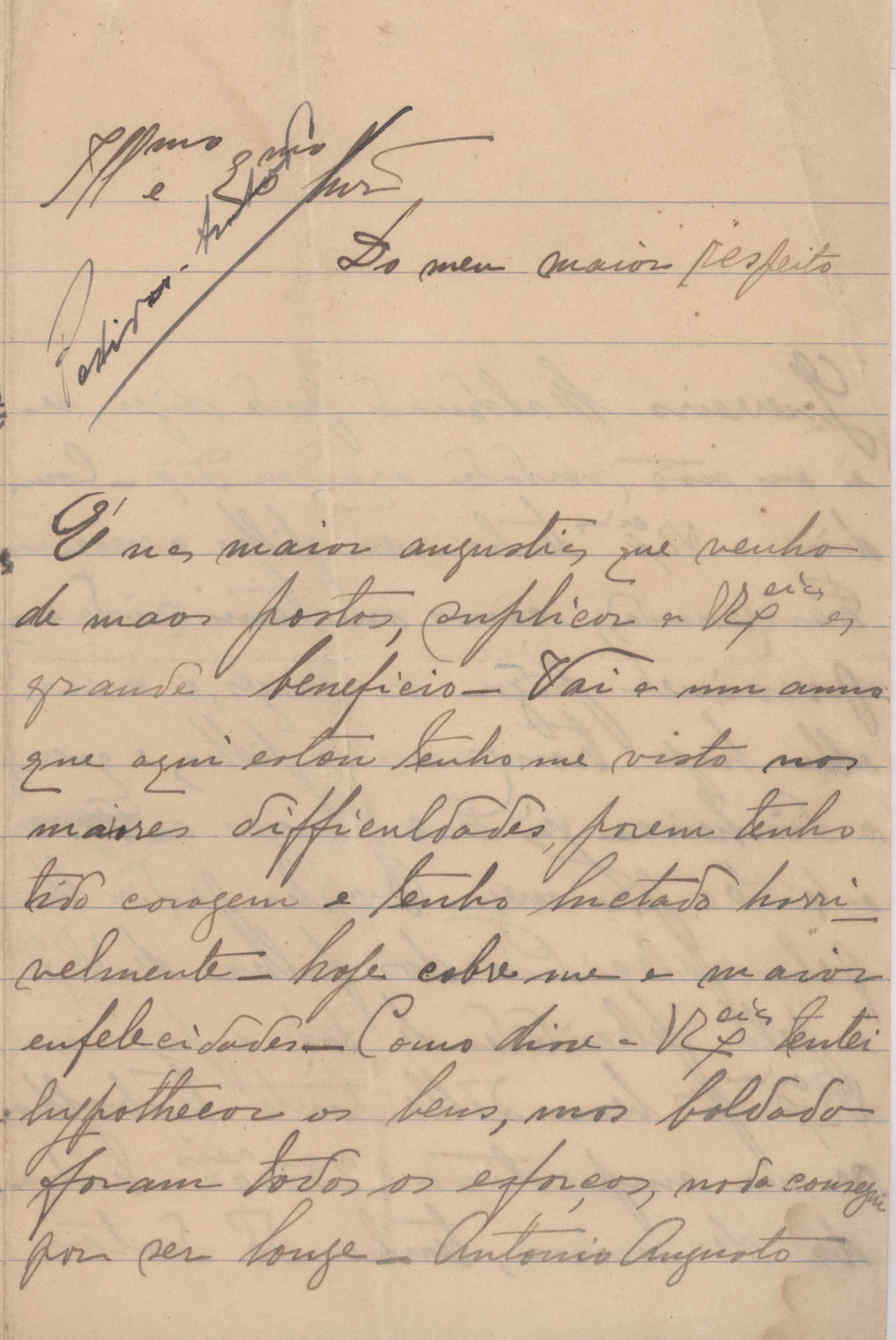 Illmo e Exmo Snr
Do meu maior respeito
É na maior angustia que venho
de maos postas, suplicar a V Excia
grande beneficio — Vai a um anno
que aqui estou tenho me visto nas
maiores difficuldades, porem tenho
tido coragem e tenho luctado horri
velmente — hoje cobre me a maior
enfelecidade — Como disse a V Excia tentei
hypothecar os bens, mas baldado
foram todos os esforços, nada consegui
por ser longe — António Augusto